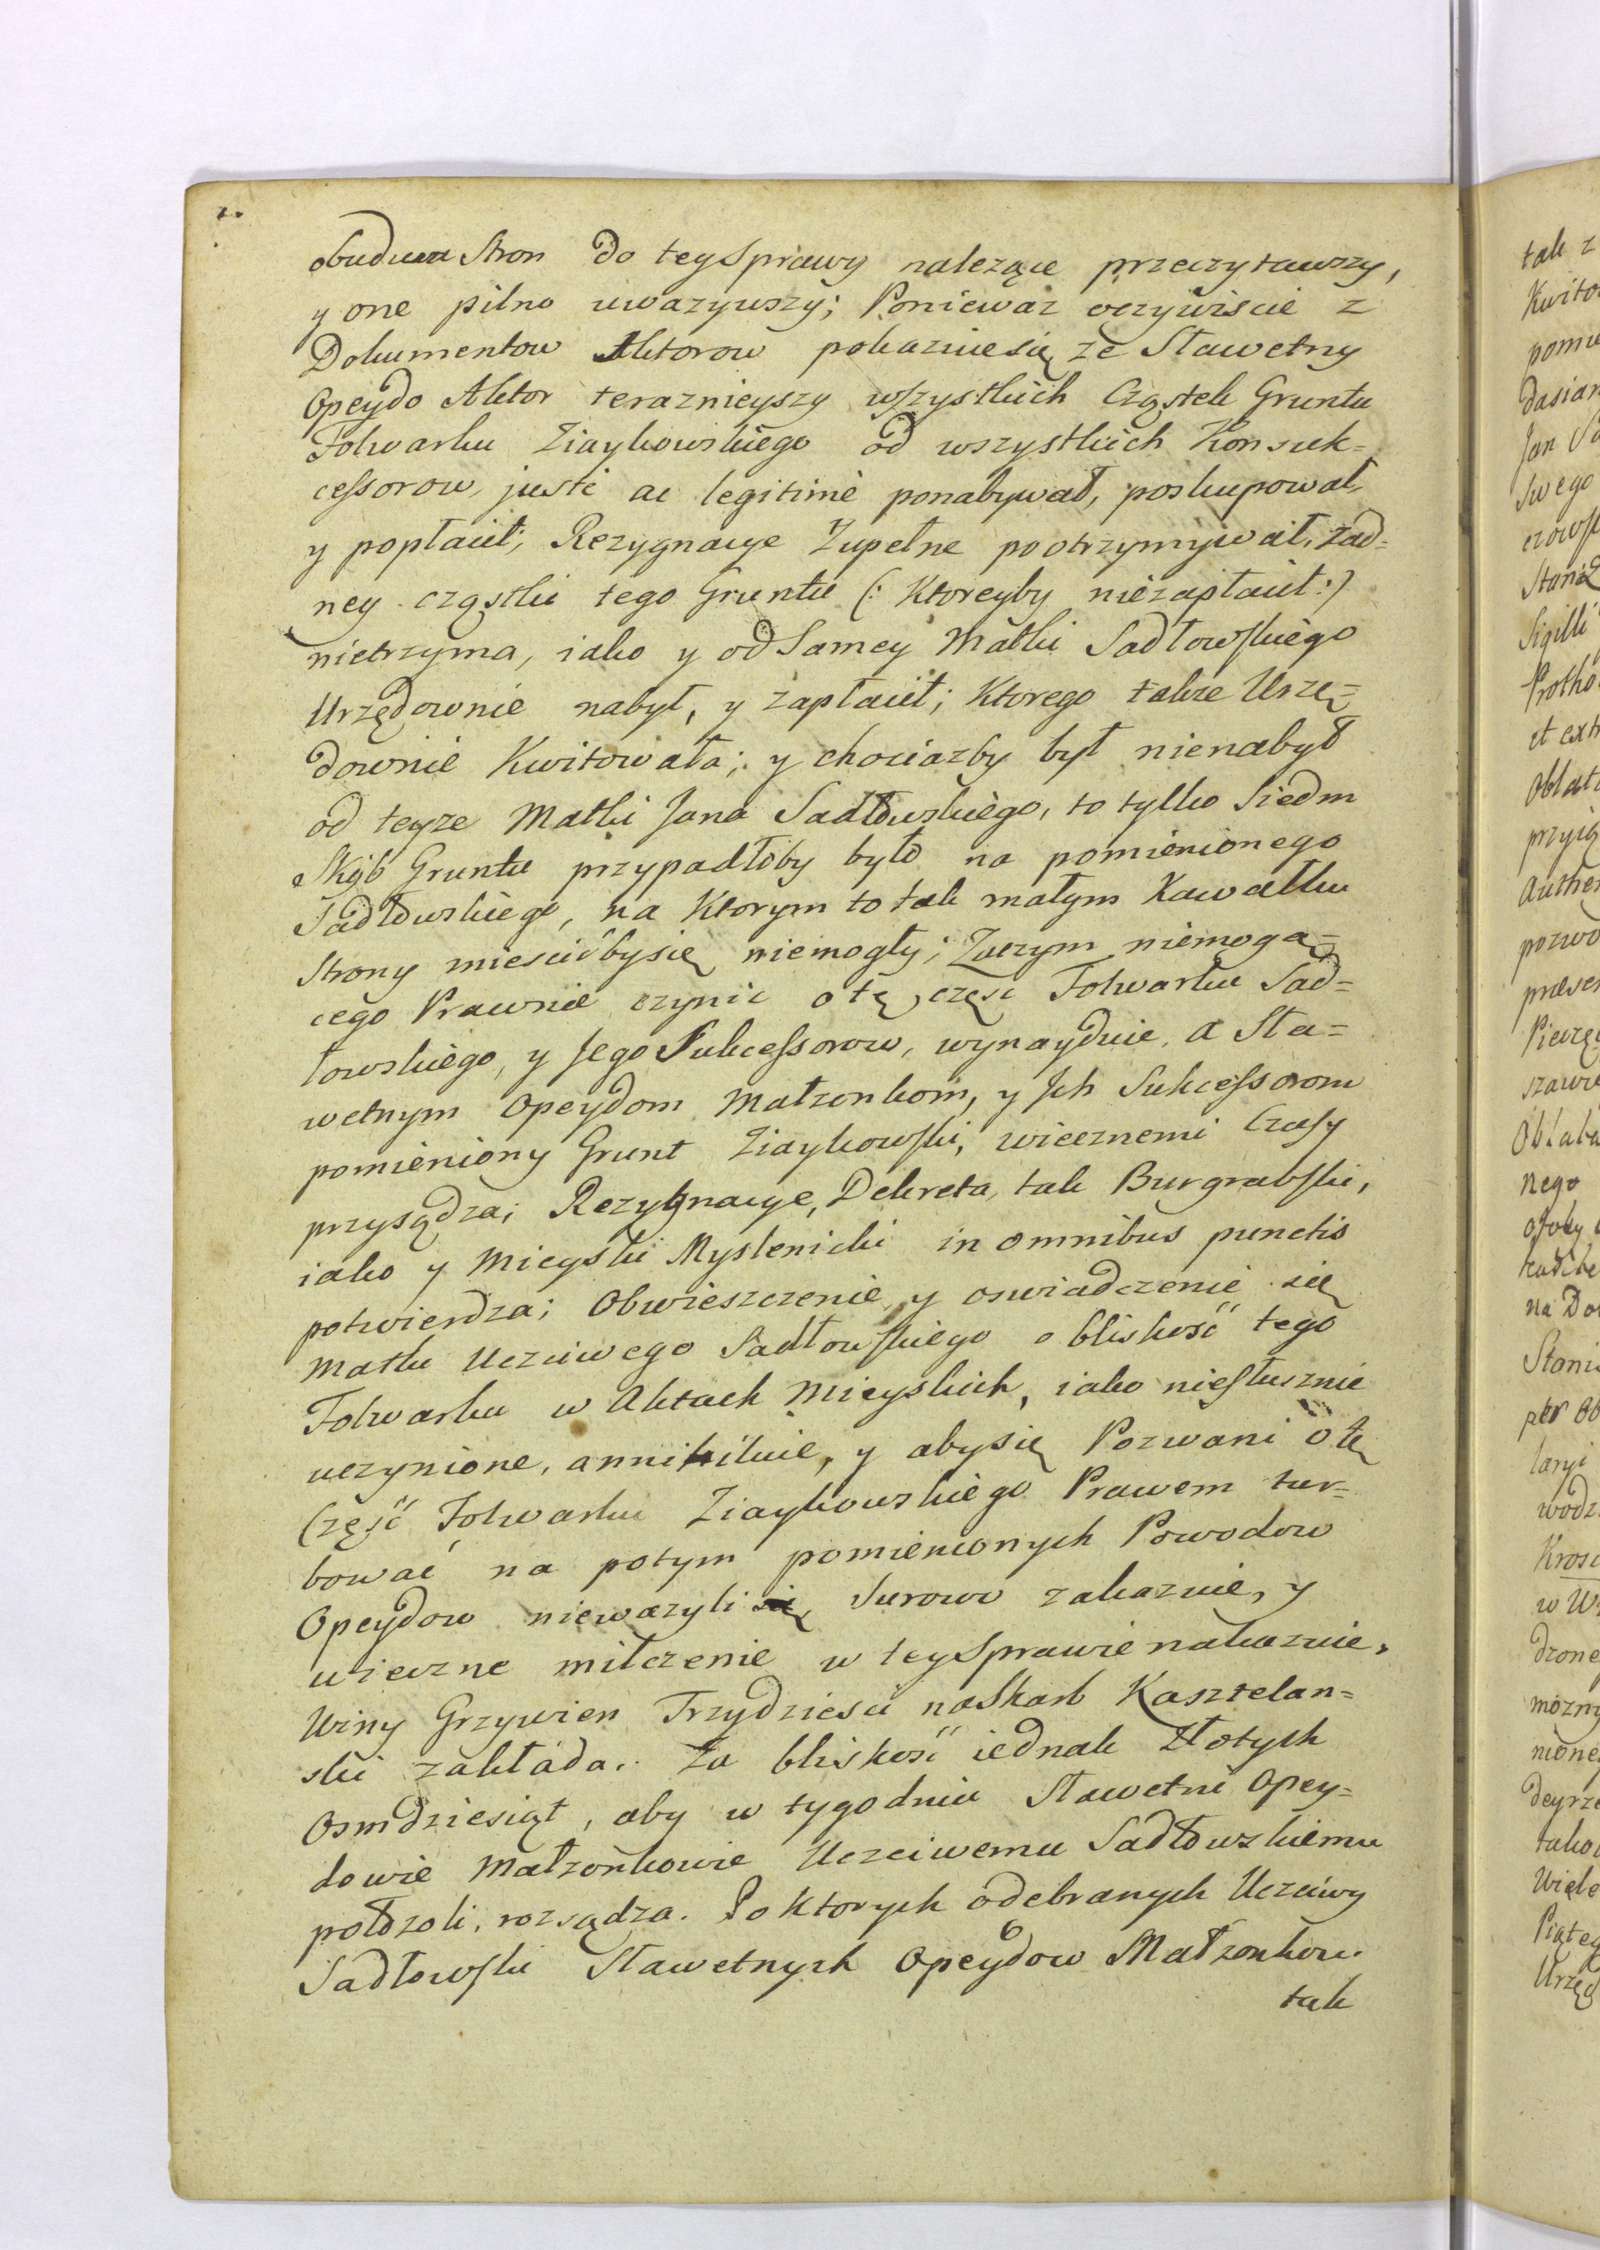 obudwu Stron do tey Sprawy nalezące przeczytawszy,
y one pilno uwazywszy; Poniewaz oczywiscie z
Dokumentow Aktorow pokazuiesię ze Sławetny
Opeydo Aktor teraznieyszy wszystkich Cząstek Gruntu
Folwarku Ziaykowskiego od wszystkich Konsuk=
cessorow, juste ac legitime ponabywał, poskupował,
y popłacił; Rezygnacye Zupełne pootrzymywał, zad=
ney cząstki tego Gruntu (: Ktoreyby niezapłacił :)
nietrzyma, iako y od Samey Matki Sadłowskiego
Urzędownie nabył, y zapłacił; Ktorego takze Urzę=
downie Kwitowała; y chociazby był nienabył
od teyze Matki Jana Sadłowskiego, to tylko Siedm
Skib Gruntu przypadłoby było na pomienionego
Sadłowskiego, na Ktorym to tak małym Kawałku
Strony miescićbysię niemogły; Zaczym niemoga=
cego Prawnie czynic o tę częsc Folwarku Sad=
łowskiego, y Jego Sukcessorow, wynayduie, a Sła=
wetnym Opeydom Małzonkom, y Ich Sukcessorom
pomieniony Grunt Ziaykowski, wiecznemi Czasy
przysądza; Rezygnacye, Dekreta, tak Burgrabski,
iako y Mieyski Myslenicki in omnibus punctis
potwierdza; Obwieszczenie y oswiadczenie się
Matki Uczciwego Sadłowskiego o bliskość tego
Folwarku w Aktach Mieyskich, iako niesłusznie
uczynione, annihiluie, y abysię Pozwani o tę
Część Folwarku Ziaykowskiego Prawem tur=
bować na potym pomienionych Powodow
Opeydow niewazyli się, Surowo zakazuie, y
wieczne milczenie w tey Sprawie nakazuie,
Winy Grzywien Trzydziesci na Skarb Kasztelan=
ski zakłada. Za bliskość iednak Złotych
Osmdziesiąt, aby w tygodniu Sławetni Opey=
dowie Małzonkowie Uczciwemu Sadłowskiemu
połozoli, rozsądza. Po Ktorych odebranych Uczciwy
Sadłowski Sławetnych Opeydow Małzonkow
tak